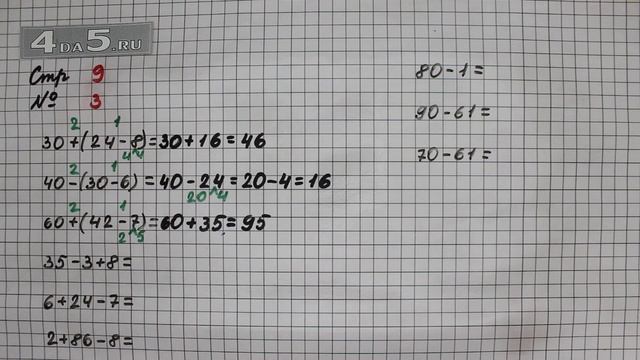 4DA5.RU
Стр 9
№ 3
2 1
30+(24-8)=30+16=46
4 4
2 1
40-(30-6)=40-24=20-4=16
20 4
2 1
60+(42-7)=60+35=95
2 5
35-3+8=
6+24-7=
2+86-8=
80-1=
90-61=
70-61=